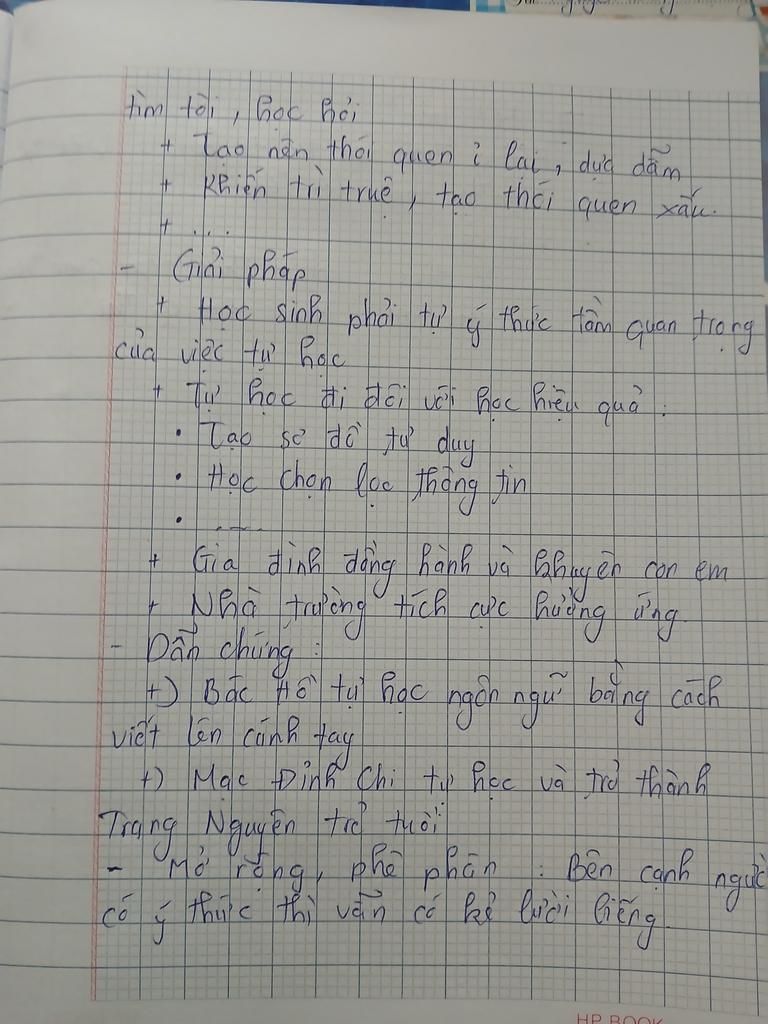 tìm tòi, học hỏi
+ Tạo nên thói quen ỉ lại, dựa dẫm
+ Khiến trì truệ, tạo thói quen xấu.
+ ...
- Giải pháp
+ Học sinh phải tự ý thức tầm quan trọng
của việc tự học
+ Tự học đi đôi với học hiệu quả:
• Tạo sơ đồ tư duy
• Học chọn lọc thông tin
• ....
+ Gia đình đồng hành và khuyên con em
+ Nhà trường tích cực hưởng ứng.
- Dẫn chứng:
+) Bác Hồ tự học ngôn ngữ bằng cách
viết lên cánh tay
+) Mạc Đĩnh Chi tự học và trở thành
Trạng Nguyên trẻ tuổi
- Mở rộng, phê phán: Bên cạnh người
có ý thức thì vẫn có kẻ lười biếng.
HP BOOK